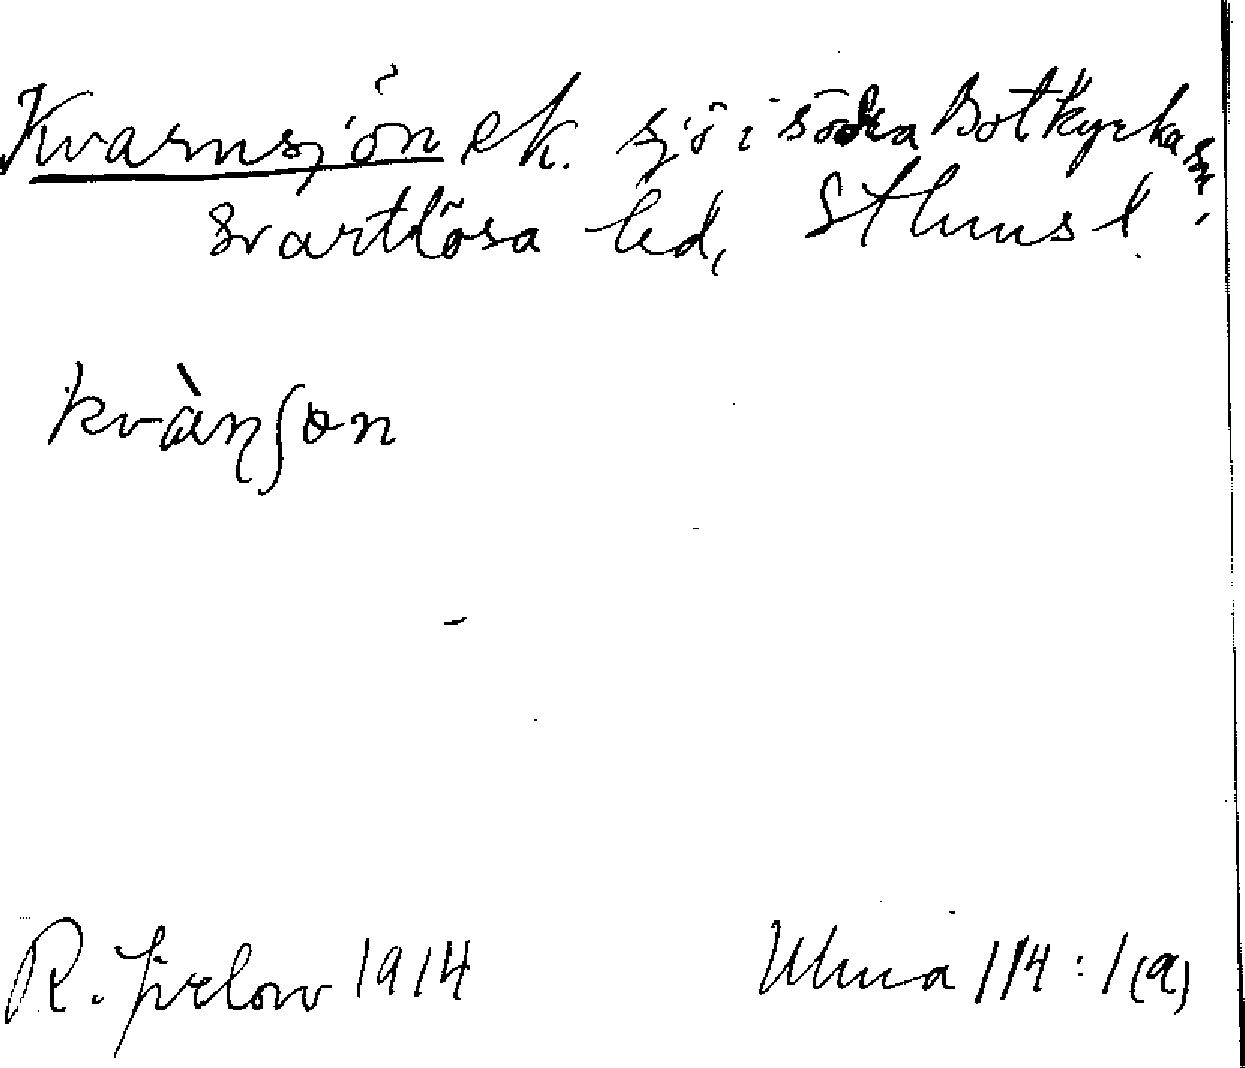 Kvarnsjön ek. sjö i södra Botkyrka sn,
Svartlösa hd, Sthms l.
kvànʃon
R. 1914
Ulma 114:1(a)